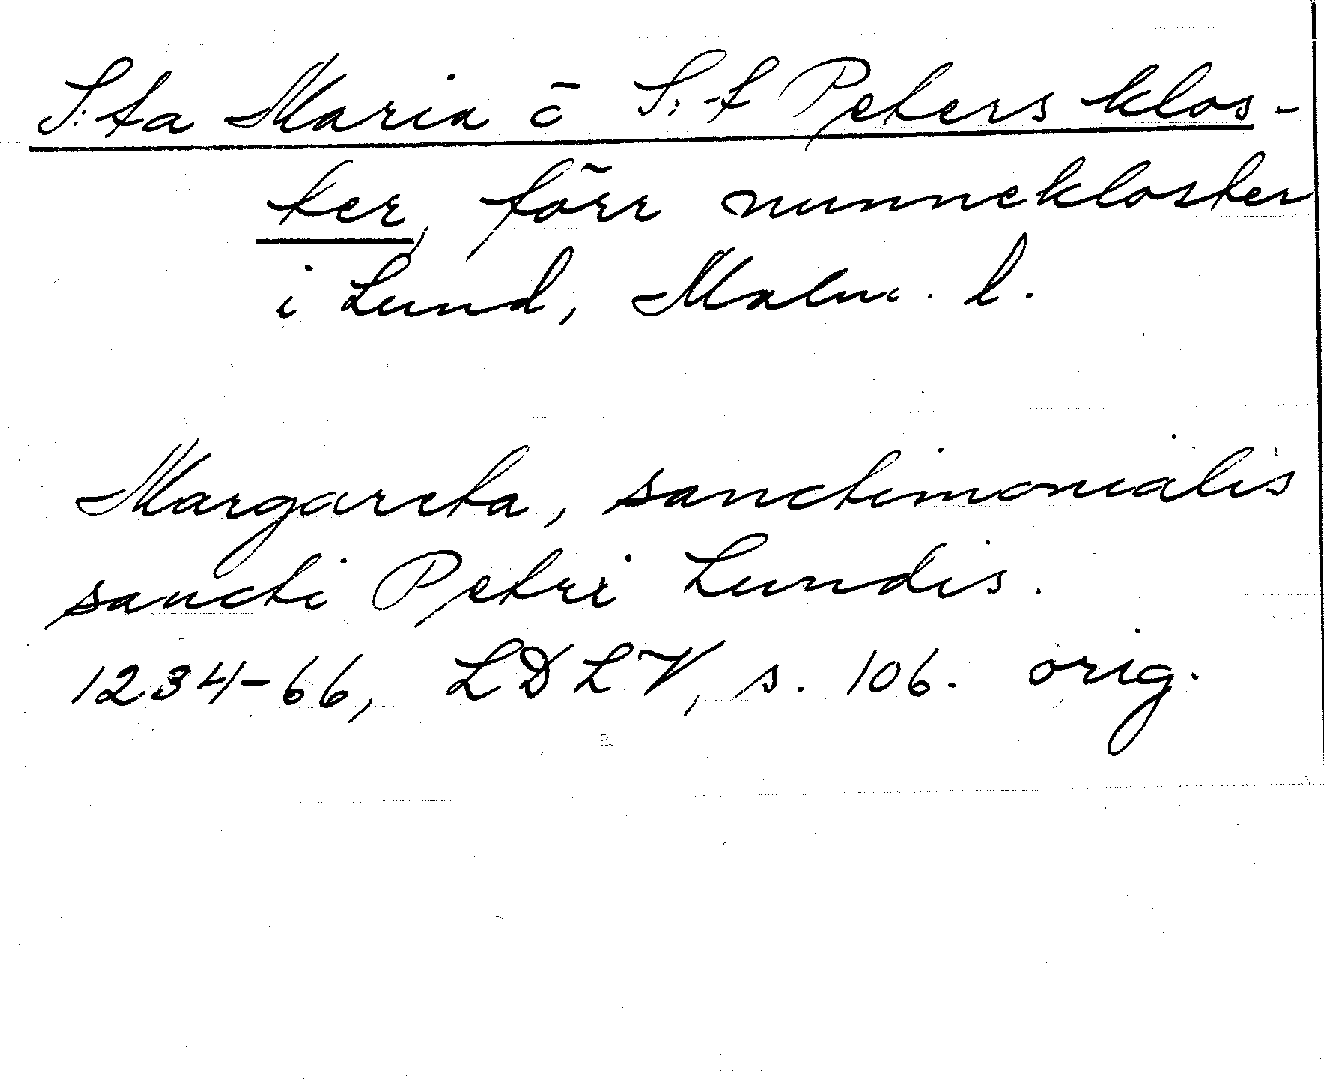 S:ta Maria ō S:t Peters klos-
ter, förr nunnekloster
i Lund, Malm. l.
Margareta, sanctimonialis
sancti Petri Lundis.
1234-66, LDLV, s. 106. orig.